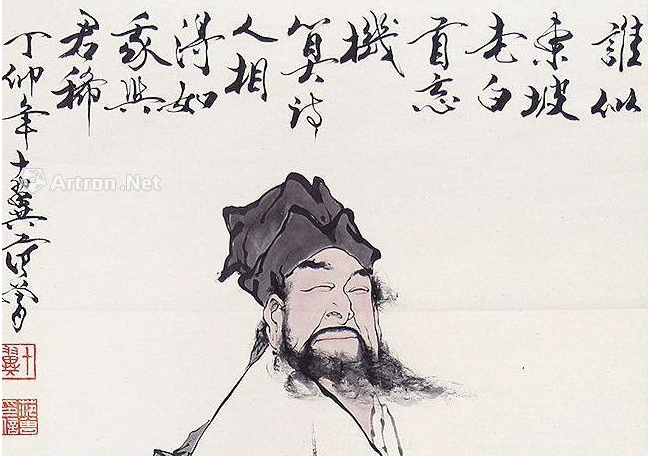 誰似
東坡
老白
首忘
機
算詩
人相
得如
我與
君稀
丁卯年十翼范曾
十翼
Artron.Net